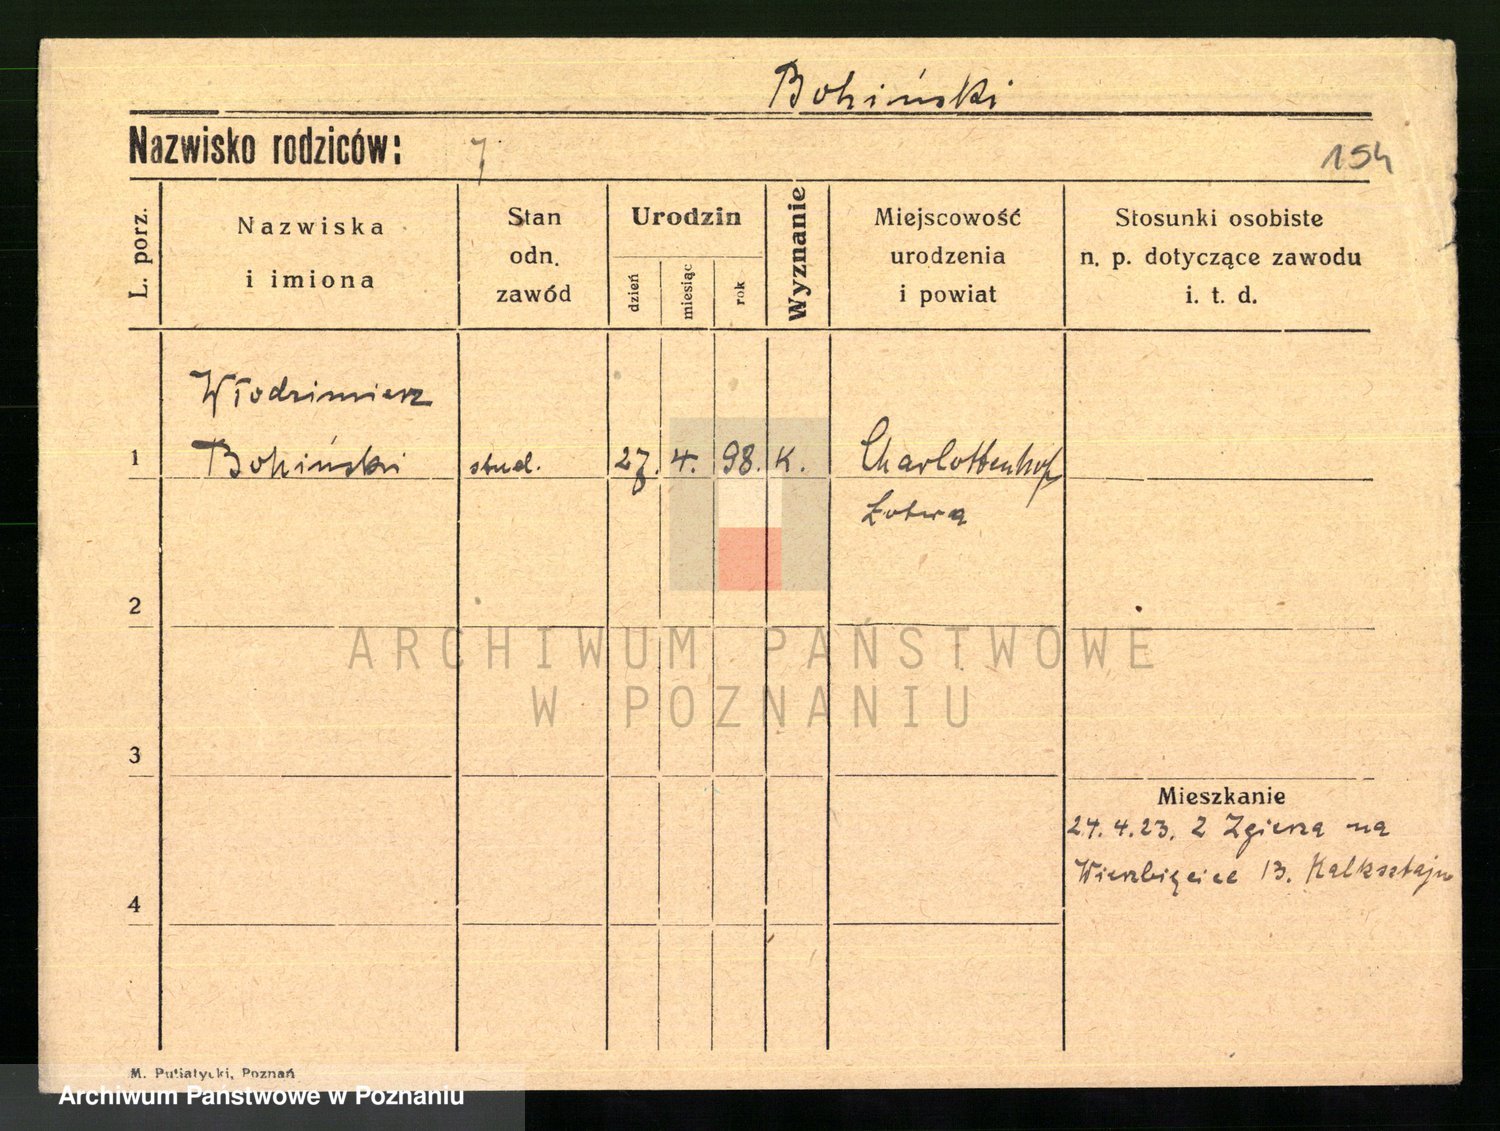 Bohiński
Nazwisko rodziców:
154
L. porz.
Nazwiska
i imiona
Stan
odn.
zawód
Urodzin
dzień
miesiąc
rok
Wyznanie
Miejscowość
urodzenia
i powiat
Stosunki osobiste
n. p. dotyczące zawodu
i. t. d.
Włodzimierz
1 Bohiński stud. 27. 4. 98. K. Charlottenhof
Łotwa
2
ARCHIWUM PAŃSTWOWE
W POZNANIU
3
Mieszkanie
24.4.23. Z Zgierza na
Wierzbięcice 13. Kalksztajn
4
M. Putiatycki, Poznań
Archiwum Państwowe w Poznaniu